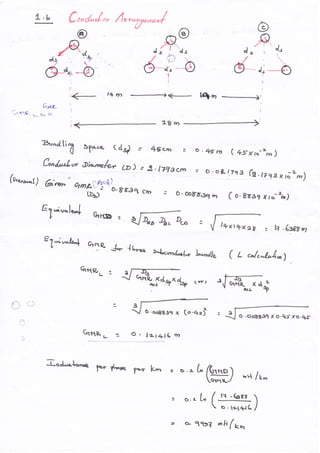 1.b Conductor Arrangement
A B C
ds ds ds ds ds ds
ds ds ds
14 m 14 m
28 m
GMR
Bundling space (dsp) = 45 cm = 0.45 m ( 45 x 10^-2 m )
Conductor Diameter (D) = 2.1793 cm = 0.021793 (2.1793 x 10^-2 m)
Given GMR (Ds) 0.8839 cm = 0.008839 m ( 0.8839 x 10^-2 m )
Equivalent GMD = 3√ DAB DBC DCA = 3√ 14 x 14 x 28 = 17.6388 m
Equivalent GMR for three subconductor bundle ( L calculation )
GMR L = 3√ GMR x dsp x dsp (or) 3√ GMR x dsp^2
= 3√ 0.008839 x (0.45)^2 = 3√ 0.008839 x 0.45 x 0.45
GMR L = 0.121416 m
Inductance per phase per km = 0.2 ln ( GMD / GMR L ) mH/km
= 0.2 ln ( 17.6388 / 0.121416 )
= 0.9957 mH/km